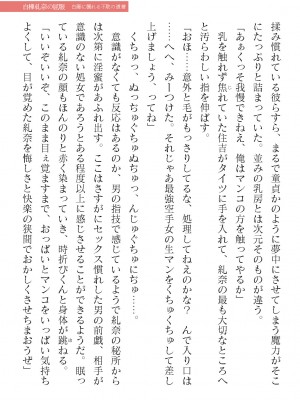 揉み慣れている彼らすら、まるで童貞かのように夢中にさせてしまう魔力がそこ
にたっぷりと詰まっていた。並みの乳房とは次元そのものが違う。
「あぁくっそ我慢できねえ、俺はマンコの方を触ってやるか」
乳を触れず焦れていた住吉がタイツに手を入れて、紘奈の最も大切なところへ
と汚らわしい指を伸ばす。
「おほっ……意外と毛がもっさりしてるな、処理してねえのかな? んで入り口は
……へへ、みーつけた。それじゃあ最強空手女の生マンをくちゅくちゅして差し
上げましょう、ってね」
くちゅっ、ぬっちゅぐちゅくちゅっ、んじゅぐちゅにちゅ……。
意識がなくても反応はあるのか、男の指技で感じているようで紘奈の秘所から
は次第に淫蜜があふれ出す。ここはさすがにセックス慣れした男の前戯、相手が
意識のない処女であろうとある程度以上に感じさせることができるようだ。眠っ
ている紘奈の顔もほんのりと赤く染まっていき、時折びくんと身体が跳ねる。
「いいぞいいぞ、このまま目ぇ覚ますまで、おっぱいとマンコをいっぱい気持ち
よくして、目が覚めた紘奈を悔しさと快楽の狭間でおかしくさせちまおうぜ」